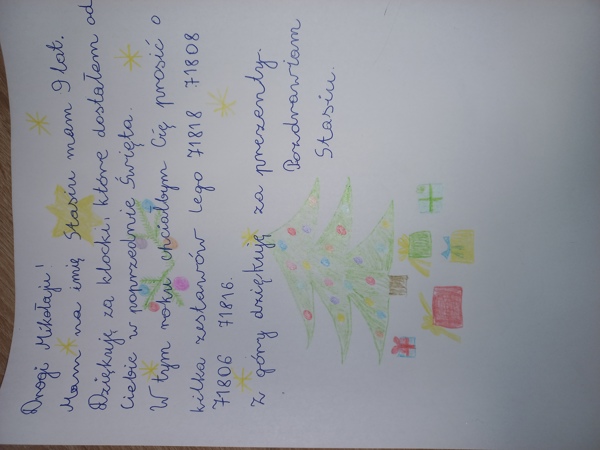 Drogi Mikołaju!
Mam na imię Stasiu mam 9 lat.
Dziękuję za klocki, które dostałem od
Ciebie w poprzednie Święta.
W tym roku chciałbym Cię prosić o
kilka zestawów lego 71818 71808
71806 71816.
Z góry dziękuję za prezenty.
Pozdrawiam
Stasiu.